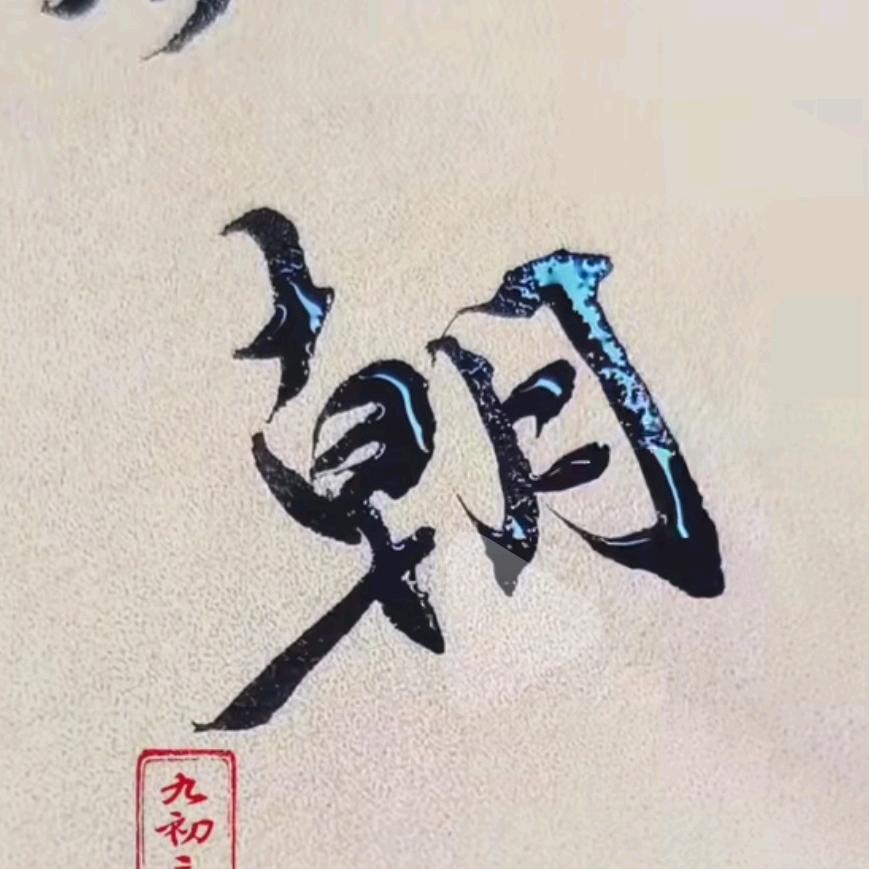 朝
九初